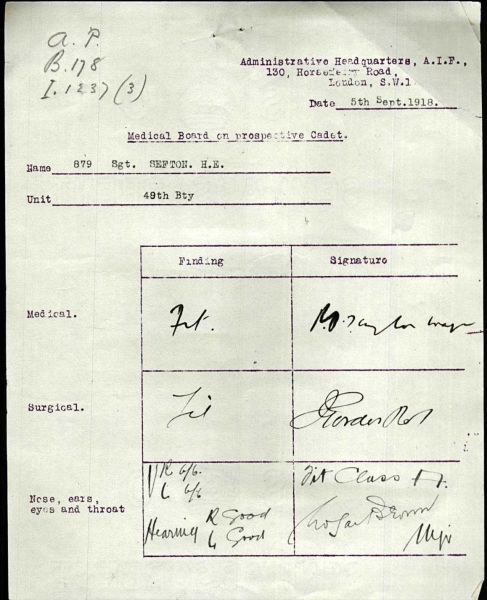 A.P.
B.178
I.1237 (3)
Administrative Headquarters, A.I.F.,
130, Horseferry Road,
London, S.W.1
Date 5th Sept.1918.
Medical Board on prospective Cadet.
Name 879 Sgt. SEFTON. H.E.
Unit 49th Bty
Finding Signature
Medical. Fit.
Surgical. Fit
V R 6/6. Fit Class A.
L 6/6
Nose, ears,
eyes and throat
Hearing R Good
L Good Brown
Major